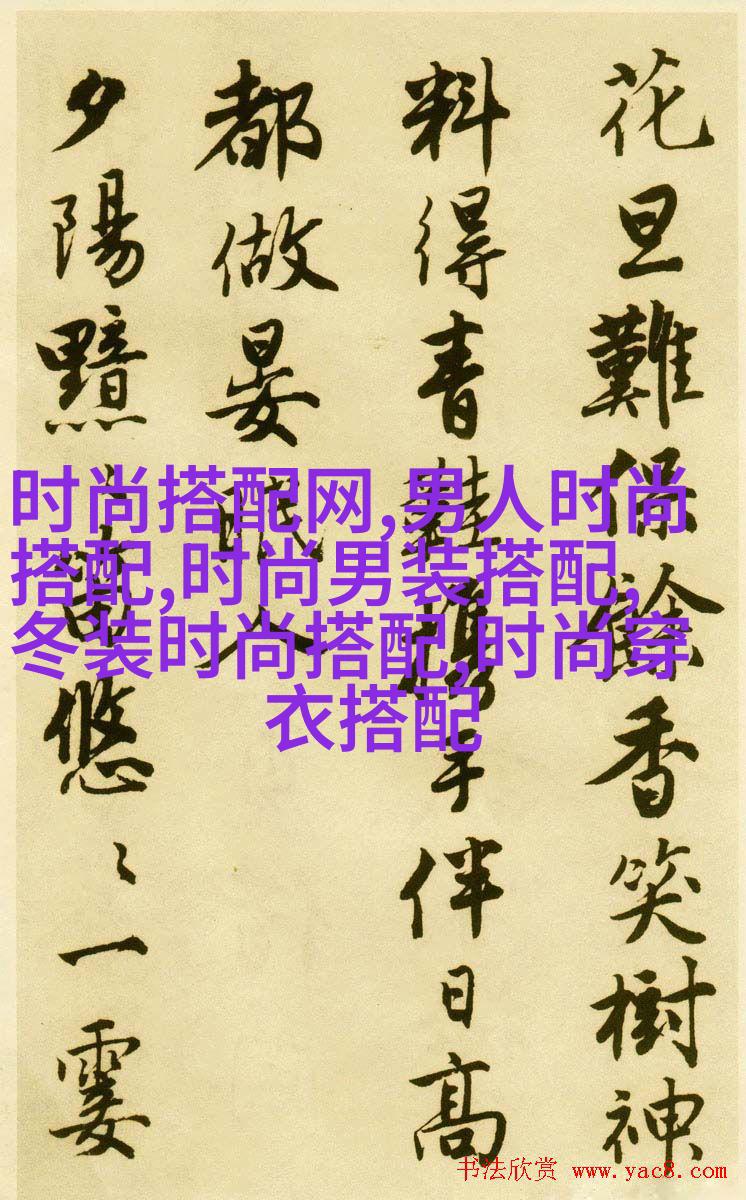 花旦難保餘香笑樹神
料得青鞋攜手伴日高
都做晏眠人
夕陽黯〻悠〻一霎
时尚搭配网,男人时尚
搭配,时尚男装搭配,
冬装时尚搭配,时尚穿
衣搭配
书法欣赏 www.yac8.com